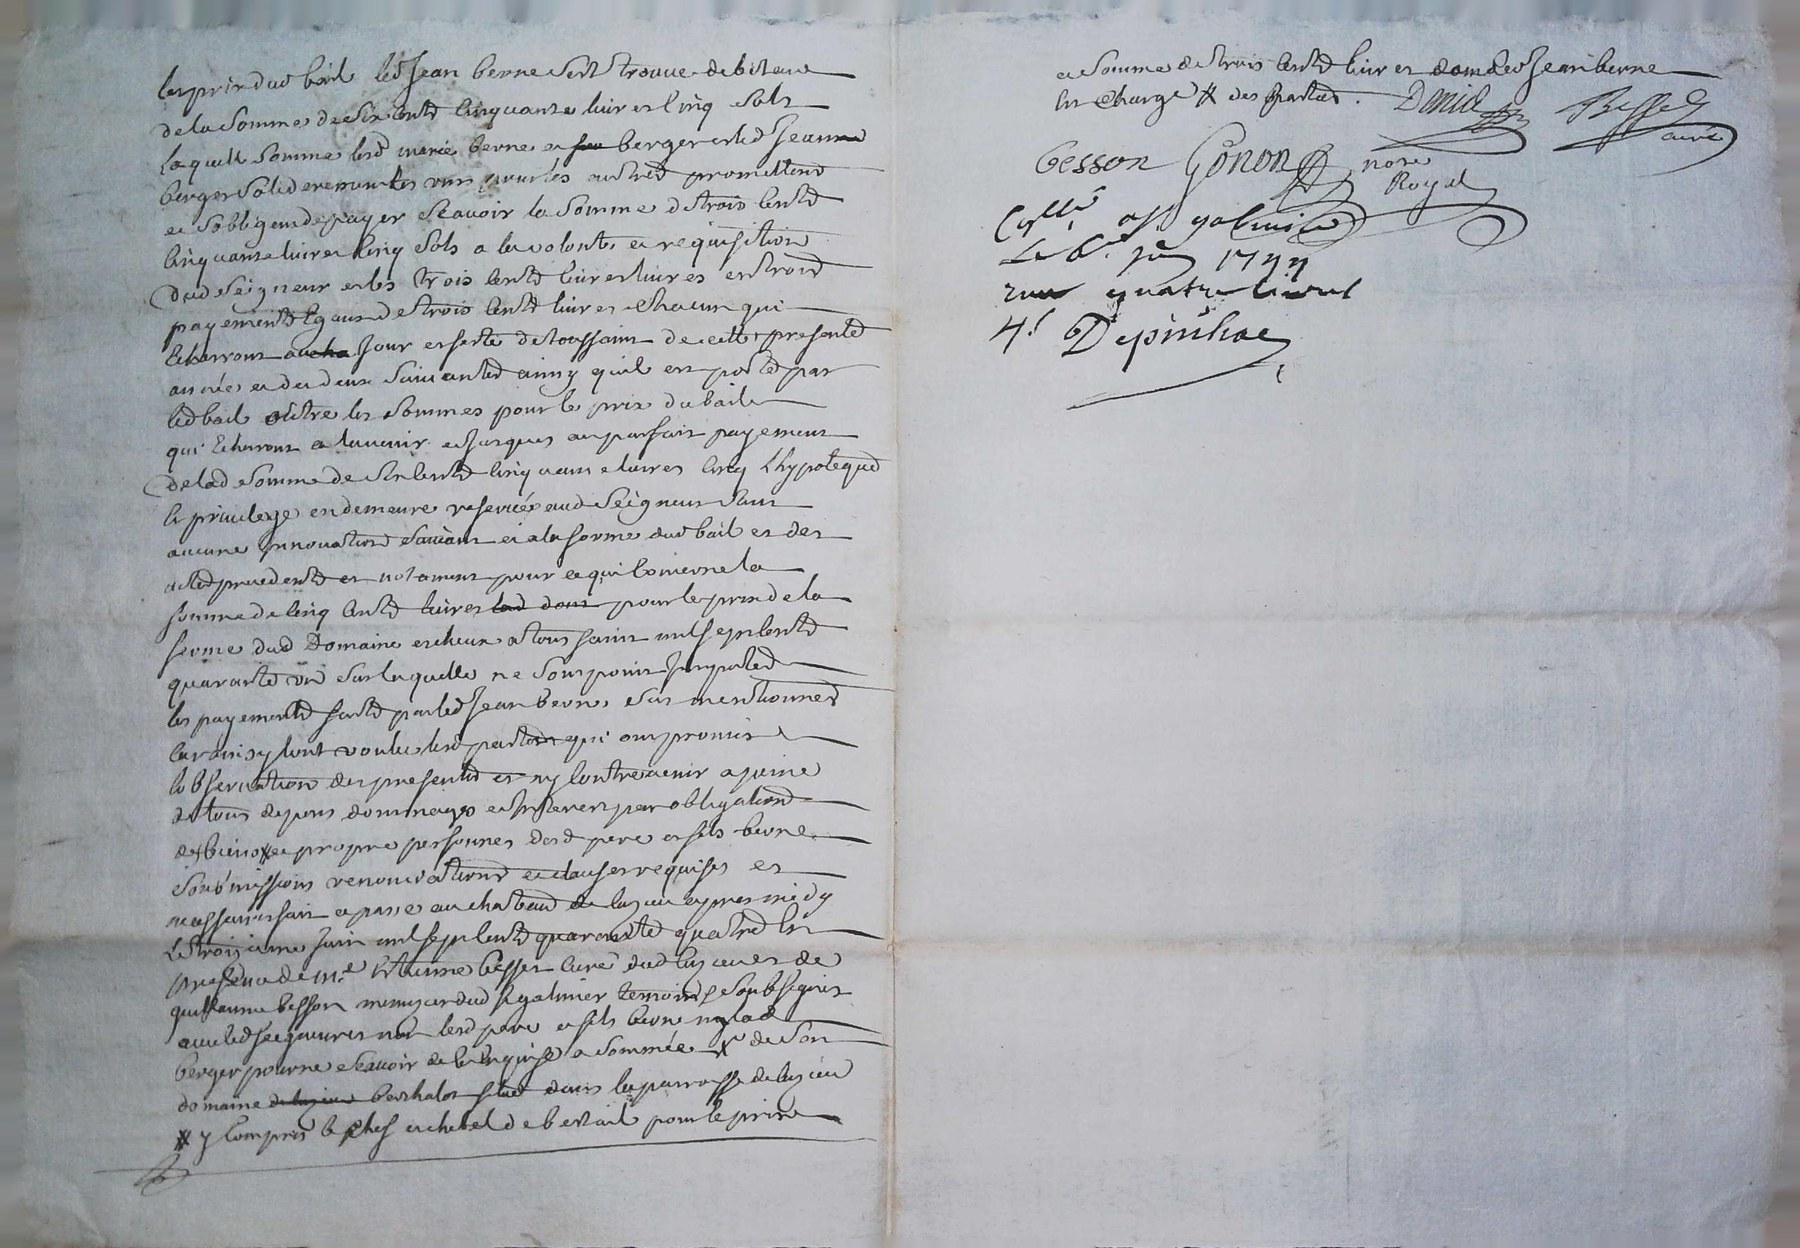 les prix dud bail led Jean berne sest trouve debiteur
de la Somme de Six Cents Cinquante livres Cinq Sols
laquelle Somme lesd marie berne et berger et led Jean
berger Solidairement les uns pour les autres promettent
et sobligent de payer Scavoir la Somme de trois Cents
Cinquante livres Cinq Sols a la volonte et requisition
dud Seigneur et les trois Cents livres livres en trois
payements Egaux de trois Cents livres Chacun qui
Echerront Jour et feste de toussaint de cette presente
année et des deux Suivantes ainsy quil est porté par
led bail outre les Sommes pour le prix du bail
qui Echerront a lavenir et Jusques au parfait payement
de lad Somme de Six Cents Cinquante livres Cinq Lhypoteque
et privilege en demeure reservée aud Seigneur Sans
aucune Innovation Suivant et a la forme dud bail et des
actes precedents et notament pour ce qui Concerne la
Somme de Cinq Cents livres pour le prix de la
ferme dud Domaine escheue a tous saints mil sept Cents
quarante un Sur laquelle ne Sont point Imputés
les payements faits par led Jean berne Sus mentionnes
Car ainsy lont voulu lesd parties qui ont promis
lobservation des presentes et ny Contrevenir a peine
de tous depens dommages et Interets par obligations
de biens et propre personnes desd pere et fils berne
Soubmissions renonciations et clauses requises et
necessaires fait et passé au chateau de luzieu apres midy
Le troisieme Juin mil sept Cents quarante quatre En
presence de mre Etienne besset Curé dud luzieu et de
guillaume besson menuzier dud St galmier temoins Soubsignes
avec led Seigneur non lesd pere et fils berne ny lad
berger pour ne Scavoir de ce Enquise et Sommée X de Son
domaine berthalot situé dans la parroisse de luzieu
X y Compris le chef et chetel de bestail pour le prix
et Somme de trois Cents livres dont led Jean berne
est Chargé X des parties. David Besset
curé
besson Gonon nore
Royal
Cllé a St galmier
Le 6e Juin 1744
recu quatre livres
4# Depinhac